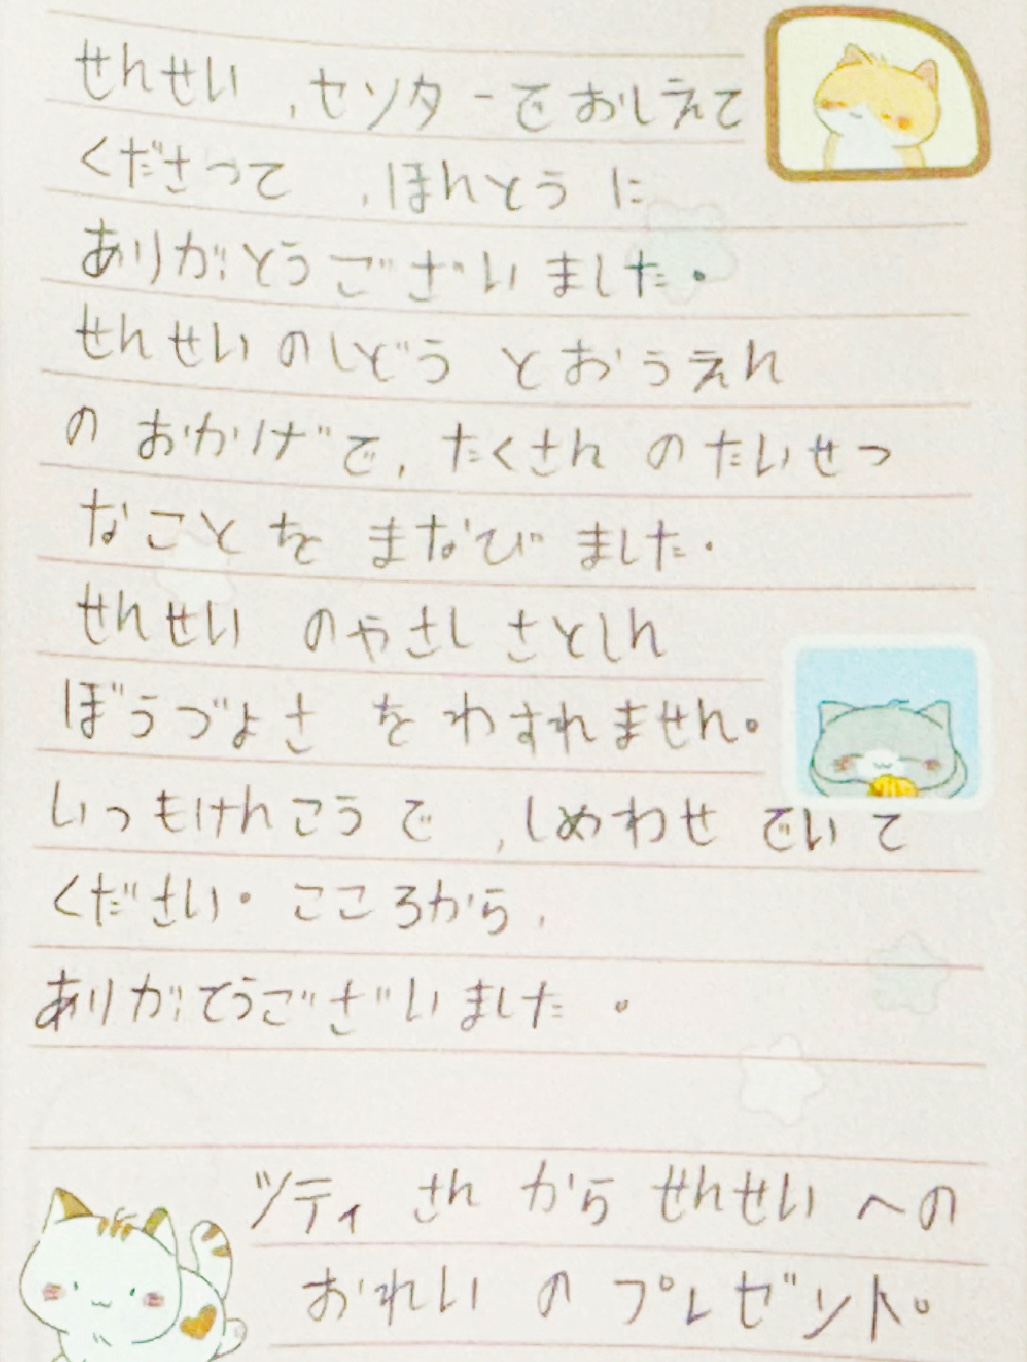 せんせい、センターでおしえて
くださって、ほんとうに
ありがとうございました。
せんせいのしどうとおうえん
のおかげで、たくさんのたいせつ
なことをまなびました。
せんせいのやさしさとしん
ぼうづよさをわすれません。
いつもけんこうで、しめわせでいて
ください。こころから、
ありがてうございました。
ツティさんからせんせいへの
おれいのプレゼント。